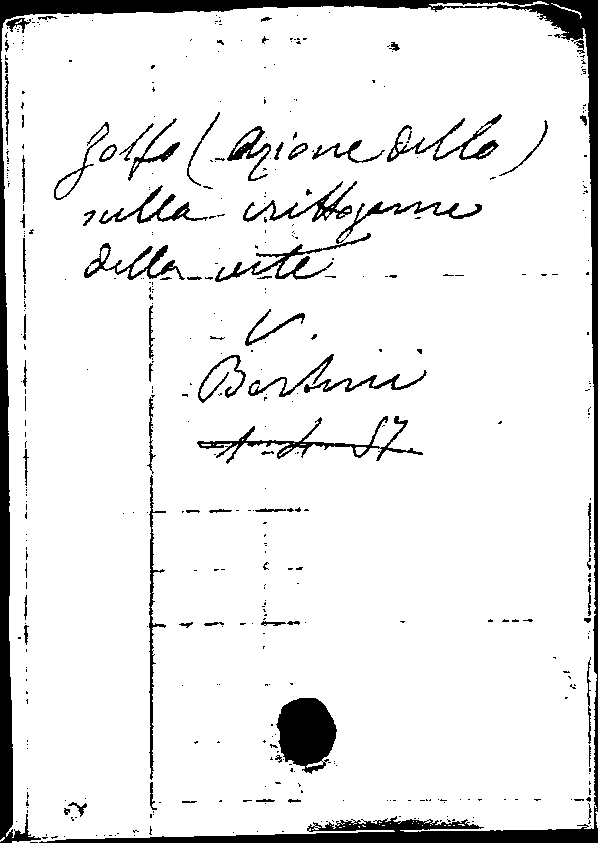 Solfo (Azione dello)
sulla crittogama
della vite
V.
Bertini
1-4-57